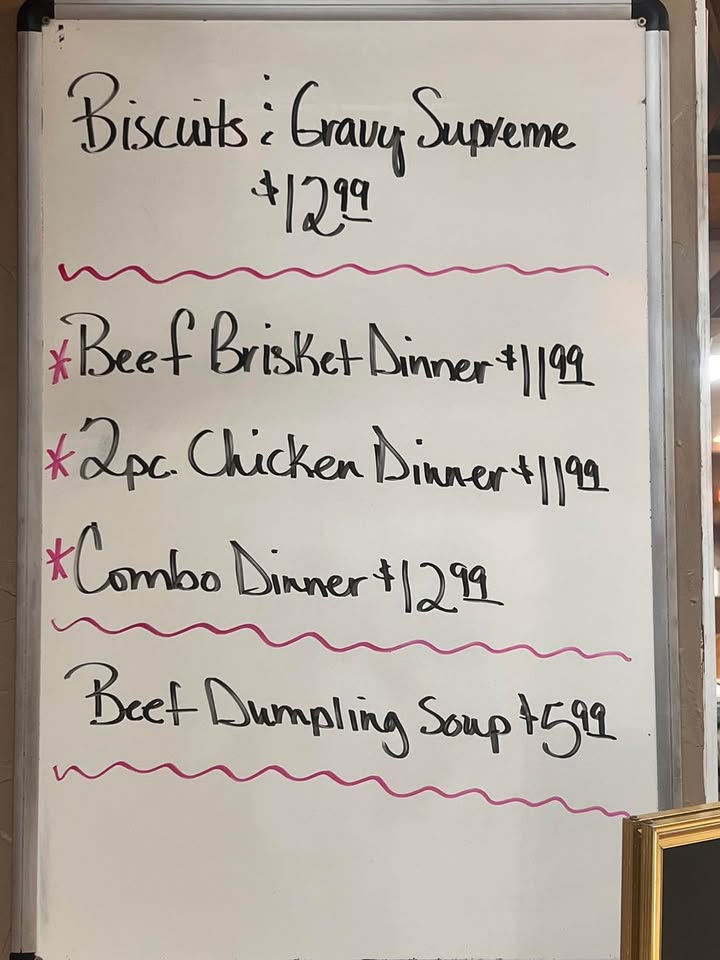 Biscuits & Gravy Supreme
$12.99
*Beef Brisket Dinner $11.99
*2pc. Chicken Dinner $11.99
*Combo Dinner $12.99
Beef Dumpling Soup $5.99